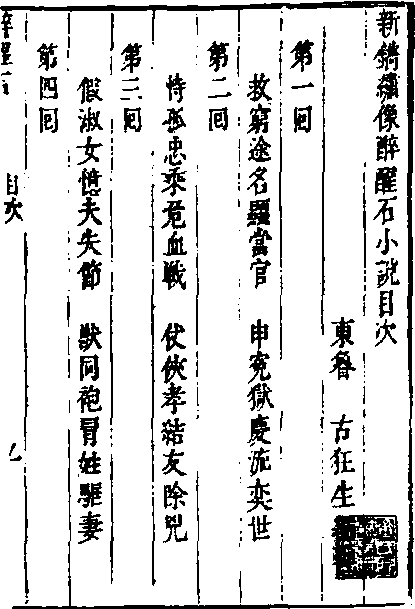 新鐫繡像醉醒石小說目次
東魯 古狂生
第一回
救窮途名顯當官 申冤獄慶流奕世
第二回
恃孤忠乘危血戰 仗俠孝結友除兇
第三回
假淑女憶夫失節 獸同袍冒姓驅妻
第四回
醉醒石 目次